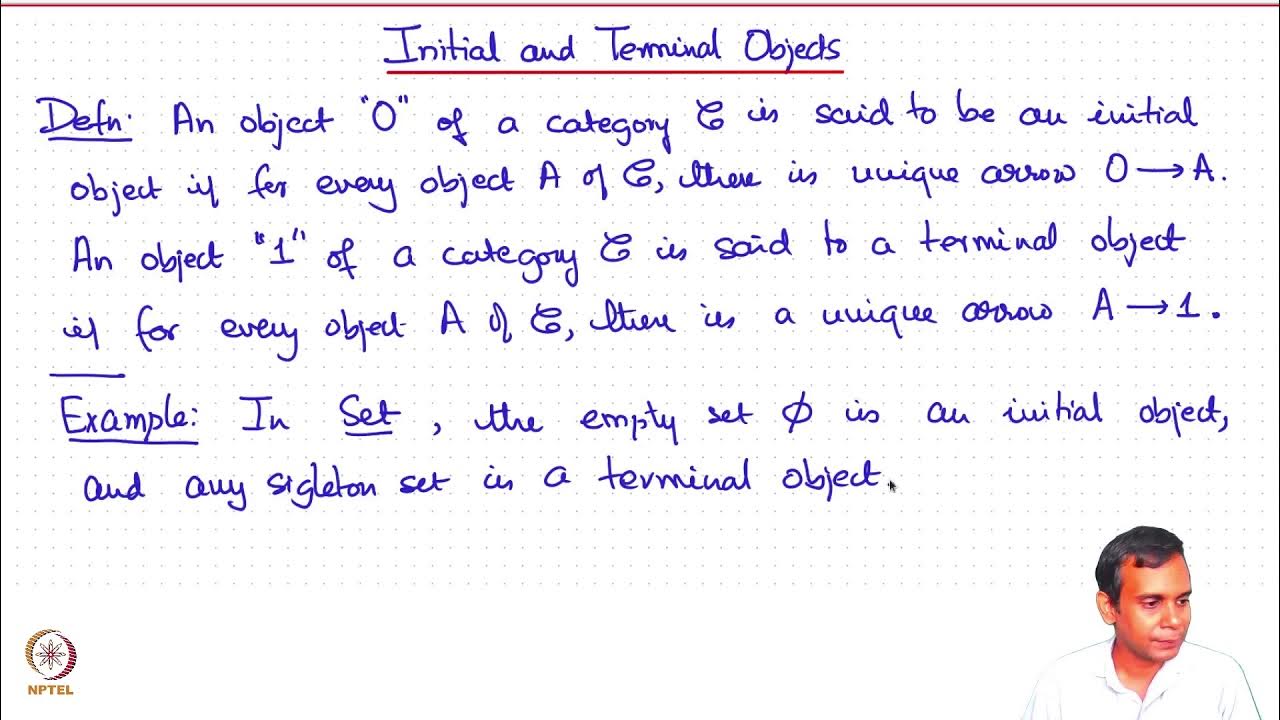 Initial and Terminal Objects
Defn: An object "0" of a category C is said to be an initial
object if for every object A of C, there is unique arrow 0 → A.
An object "1" of a category C is said to a terminal object
if for every object A of C, there is a unique arrow A → 1.
Example: In Set, the empty set ϕ is an initial object,
and any sigleton set is a terminal object.
NPTEL